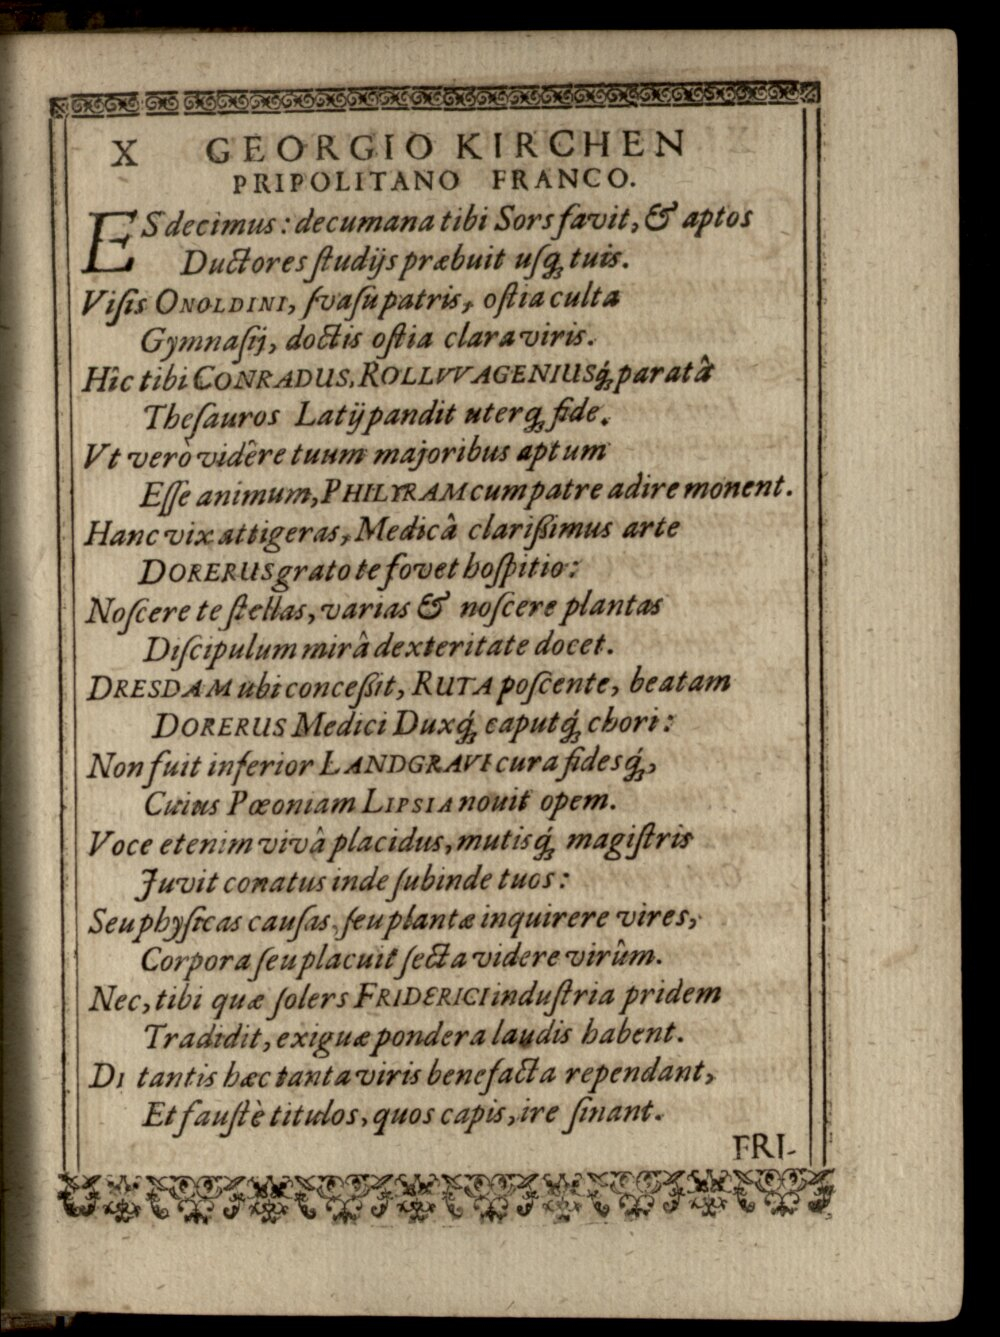 X GEORGIO KIRCHEN
PRIPOLITANO FRANCO.
ES decimus: decumana tibi Sors favit, & aptos
Ductores ſtudijs præbuit uſq́; tuis.
Viſis ONOLDINI, ſvaſu patris, oſtia culta
Gymnaſij, doctis oſtia clara viris.
Hîc tibi CONRADUS, ROLLVVAGENIUSq́; paratâ
Theſauros Latij pandit uterq; fide.
Vt verò vidêre tuum majoribus aptum
Eſſe animum, PHILYRAM cum patre adire monent.
Hanc vix attigeras, Medicâ clariſſimus arte
DORERUS grato te fovet hoſpitio:
Noſcere te ſtellas, varias & noſcere plantas
Diſcipulum mirâ dexteritate docet.
DRESDAM ubi conceſſit, RUTA poſcente, beatam
DORERUS Medici Duxq́; caputq́; chori:
Non fuit inferior LANDGRAVI cura fidesq́;,
Cuius Pœoniam LIPSIA novit opem.
Voce etenim vivâ placidus, mutisq́; magiſtris
Juvit conatus inde ſubinde tuos:
Seu phyſicas cauſas, ſeu plantæ inquirere vires,
Corpora ſeu placuit ſecta videre virûm.
Nec, tibi quæ ſolers FRIDERICI induſtria pridem
Tradidit, exiguæ pondera laudis habent.
DI tantis hæc tanta viris benefacta rependant,
Et fauſtè titulos, quos capis, ire ſinant.
FRI-